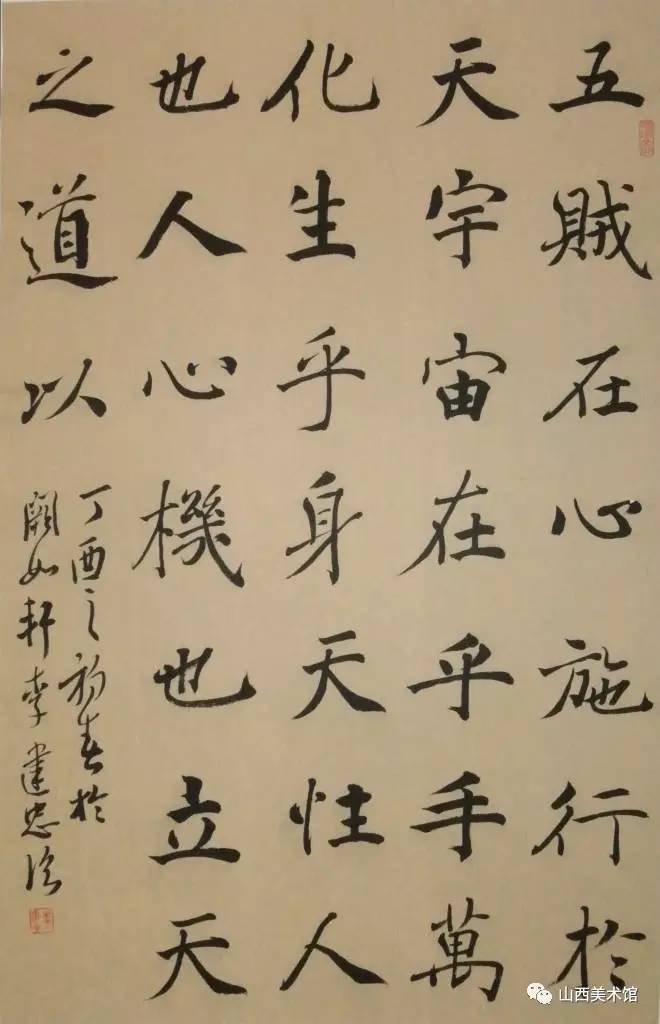 五賊在心施行於
天宇宙在乎手萬
化生乎身天性人
也人心機也立天
之道以
丁酉之初春於
闕如軒李建忠
山西美术馆